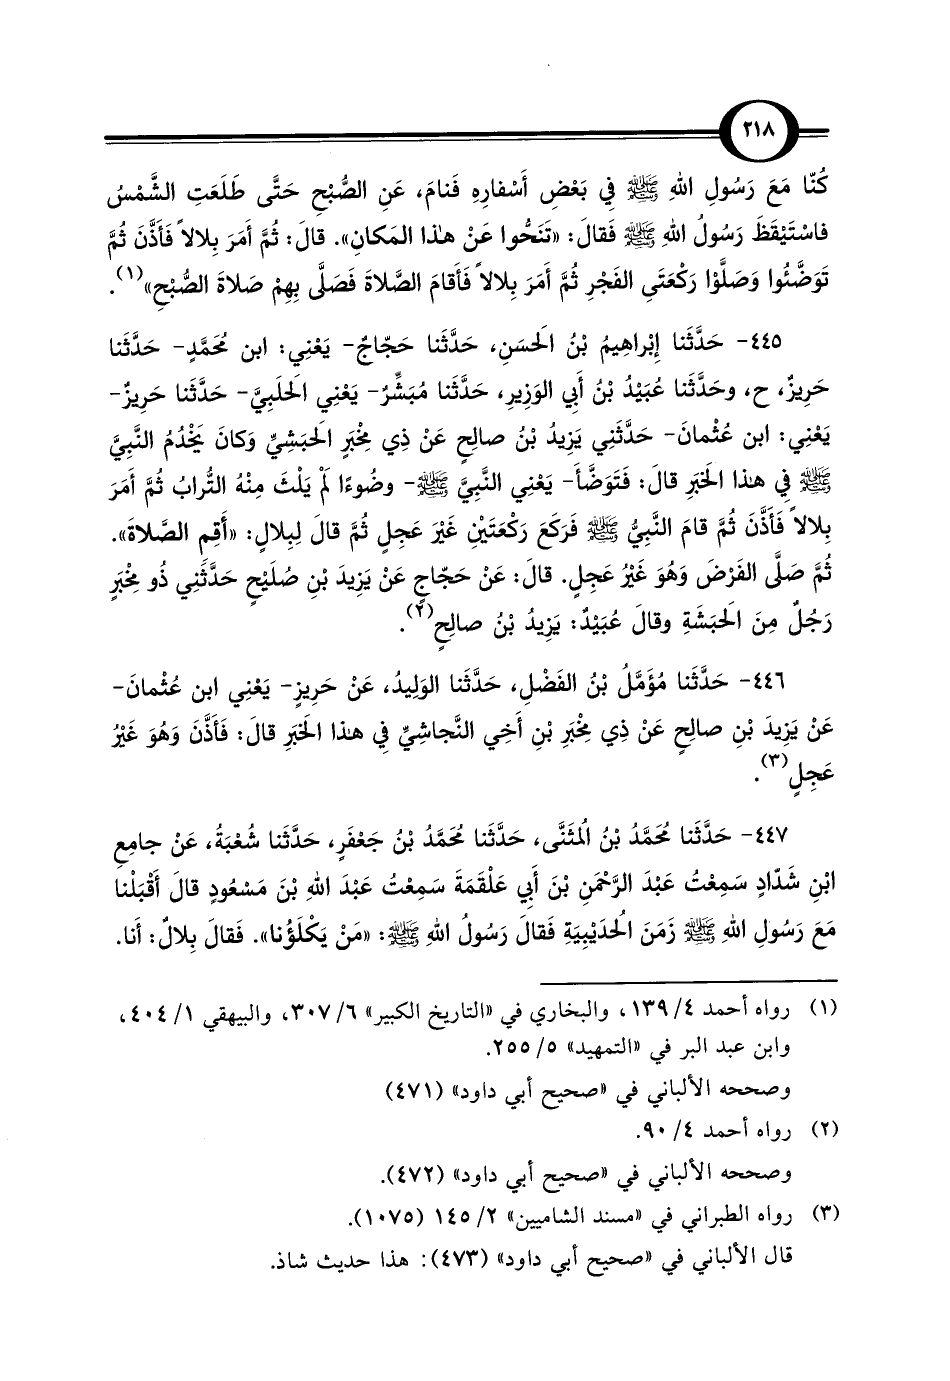 ٢١٨
كُنّا مَعَ رَسُولِ اللهِ ﷺ فِي بَعْضِ أَسْفارِهِ فَنامَ، عَنِ الصُّبْحِ حَتَّى طَلَعَتِ الشَّمْسُ
فاسْتَيْقَظَ رَسُولُ اللهِ ﷺ فَقالَ: «تَنَحُّوا عَنْ هٰذا المَكانِ». قالَ: ثُمَّ أَمَرَ بِلالاً فَأَذَّنَ ثُمَّ
تَوَضَّئُوا وَصَلَّوْا رَكْعَتَي الفَجْرِ ثُمَّ أَمَرَ بِلالاً فَأَقامَ الصَّلاةَ فَصَلَّى بِهِمْ صَلاةَ الصُّبْحِ»(١).
٤٤٥- حَدَّثَنا إِبْراهِيمُ بْنُ الحَسَنِ، حَدَّثَنا حَجّاجٌ- يَعْنِي: ابن مُحَمَّدٍ- حَدَّثَنا
حَرِيزٌ، ح، وحَدَّثَنا عُبَيْدُ بْنُ أَبِي الوَزِيرِ، حَدَّثَنا مُبَشِّرٌ- يَعْنِي الحَلَبِيَّ- حَدَّثَنا حَرِيزٌ-
يَعْنِي: ابن عُثْمانَ- حَدَّثَنِي يَزِيدُ بْنُ صالِحٍ عَنْ ذِي مِخْبَرٍ الحَبَشِيِّ وَكانَ يَخْدُمُ النَّبِيَّ
ﷺ فِي هذا الخَبَرِ قالَ: فَتَوَضَّأَ- يَعْنِي النَّبِيَّ ﷺ- وضُوءًا لَمْ يَلْثَ مِنْهُ التُّرابُ ثُمَّ أَمَرَ
بِلالاً فَأَذَّنَ ثُمَّ قامَ النَّبِيُّ ﷺ فَرَكَعَ رَكْعَتَيْنِ غَيْرَ عَجِلٍ ثُمَّ قالَ لِبِلالٍ: «أَقِمِ الصَّلاةَ».
ثُمَّ صَلَّى الفَرْضَ وَهُوَ غَيْرُ عَجِلٍ. قالَ: عَنْ حَجّاجٍ عَنْ يَزِيدَ بْنِ صُلَيْحٍ حَدَّثَنِي ذُو مِخْبَرٍ
رَجُلٌ مِنَ الحَبَشَةِ وقالَ عُبَيْدٌ: يَزِيدُ بْنُ صالِحٍ(٢).
٤٤٦- حَدَّثَنا مُؤَمَّلُ بْنُ الفَضْلِ، حَدَّثَنا الوَلِيدُ، عَنْ حَرِيزٍ- يَعْنِي ابن عُثْمانَ-
عَنْ يَزِيدَ بْنِ صالِحٍ عَنْ ذِي مِخْبَرِ بْنِ أَخِي النَّجاشِيِّ فِي هٰذا الخَبَرِ قالَ: فَأَذَّنَ وَهُوَ غَيْرُ
عَجِلٍ(٣).
٤٤٧- حَدَّثَنا مُحَمَّدُ بْنُ المُثَنَّى، حَدَّثَنا مُحَمَّدُ بْنُ جَعْفَرٍ، حَدَّثَنا شُعْبَةُ، عَنْ جامِعِ
ابْنِ شَدّادٍ سَمِعْتُ عَبْدَ الرَّحْمَنِ بْنَ أَبِي عَلْقَمَةَ سَمِعْتُ عَبْدَ اللهِ بْنَ مَسْعُودٍ قالَ أَقْبَلْنا
مَعَ رَسُولِ اللهِ ﷺ زَمَنَ الحُدَيْبِيَةِ فَقالَ رَسُولُ اللهِ ﷺ: «مَنْ يَكْلَؤُنا». فَقالَ بِلالٌ: أَنا.
(١) رواه أحمد ٤/ ١٣٩، والبخاري في «التاريخ الكبير» ٦/ ٣٠٧، والبيهقي ١/ ٤٠٤،
وابن عبد البر في «التمهيد» ٥/ ٢٥٥.
وصححه الألباني في «صحيح أبي داود» (٤٧١)
(٢) رواه أحمد ٤/ ٩٠.
وصححه الألباني في «صحيح أبي داود» (٤٧٢).
(٣) رواه الطبراني في «مسند الشاميين» ٢/ ١٤٥ (١٠٧٥).
قال الألباني في «صحيح أبي داود» (٤٧٣): هذا حديث شاذ.